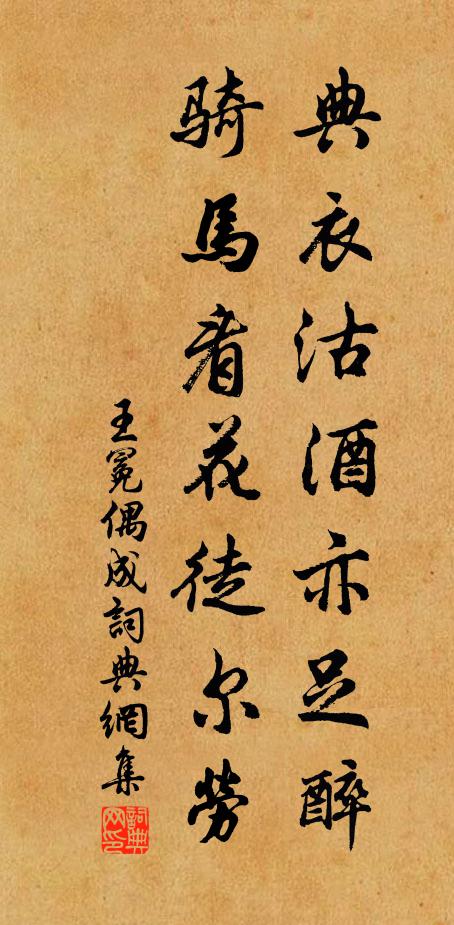 典衣沽酒亦足醉
騎馬看花徒尔勞
王冕偶成詞典網集
詞典網印